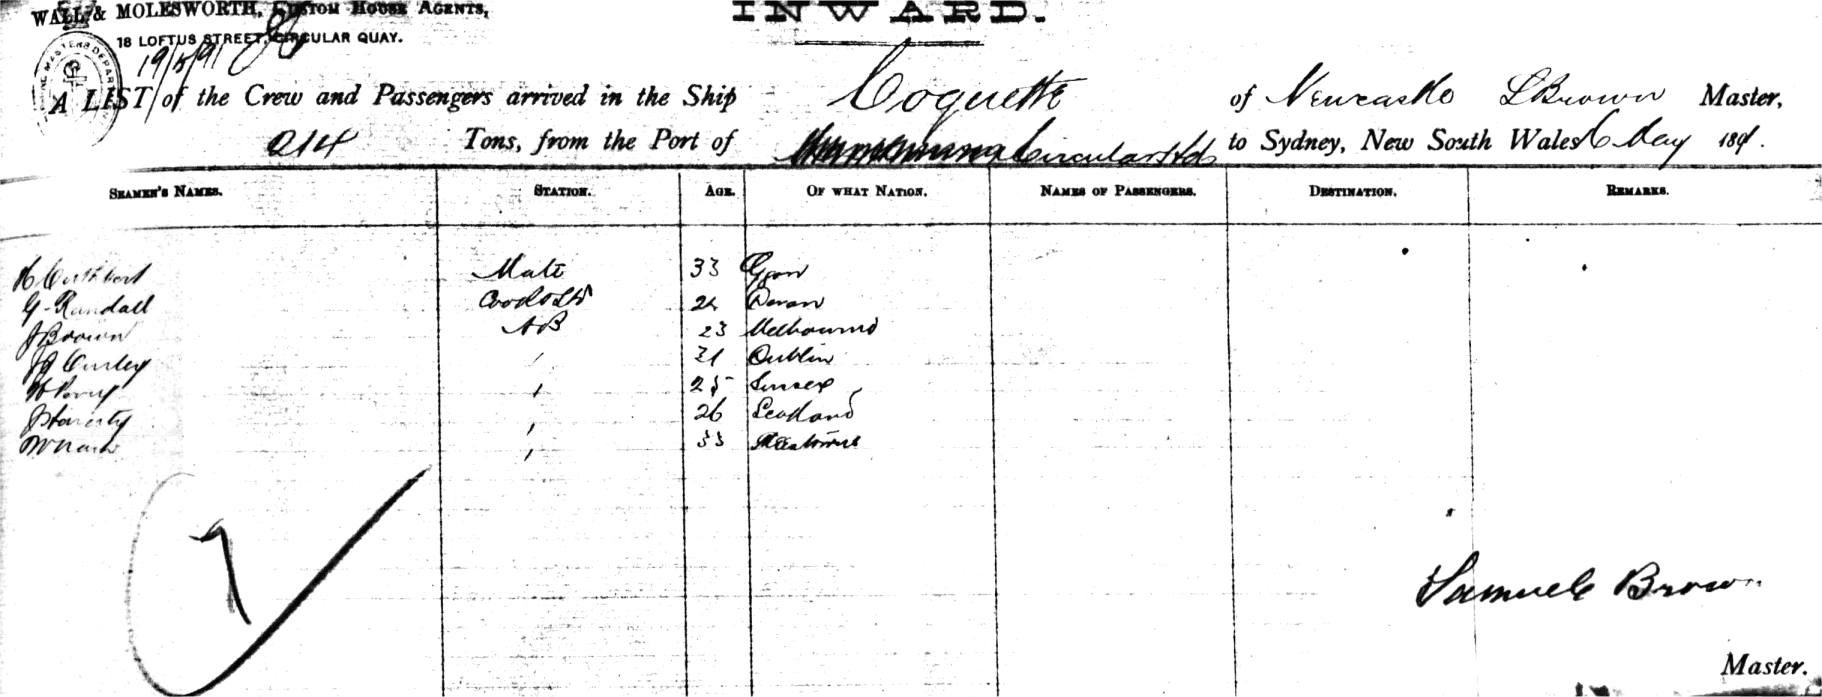 WALL & MOLESWORTH, CUSTOM HOUSE AGENTS,
18 LOFTUS STREET, CIRCULAR QUAY.
INWARD.
19/5/91
A LIST of the Crew and Passengers arrived in the Ship Coquette of Newcastle S Brown Master,
214 Tons, from the Port of Circular Hd to Sydney, New South Wales 16 May 1891.
SEAMEN'S NAMES. STATION. AGE. OF WHAT NATION. NAMES OF PASSENGERS. DESTINATION. REMARKS.
H Cuthbert Mate 33
G Randall Cook & Std 24 Devon
J Brown AB 23 Melbourne
J Curley 31 Dublin
25 Sussex
26 Scotland
33
7
Samuel Brown
Master.